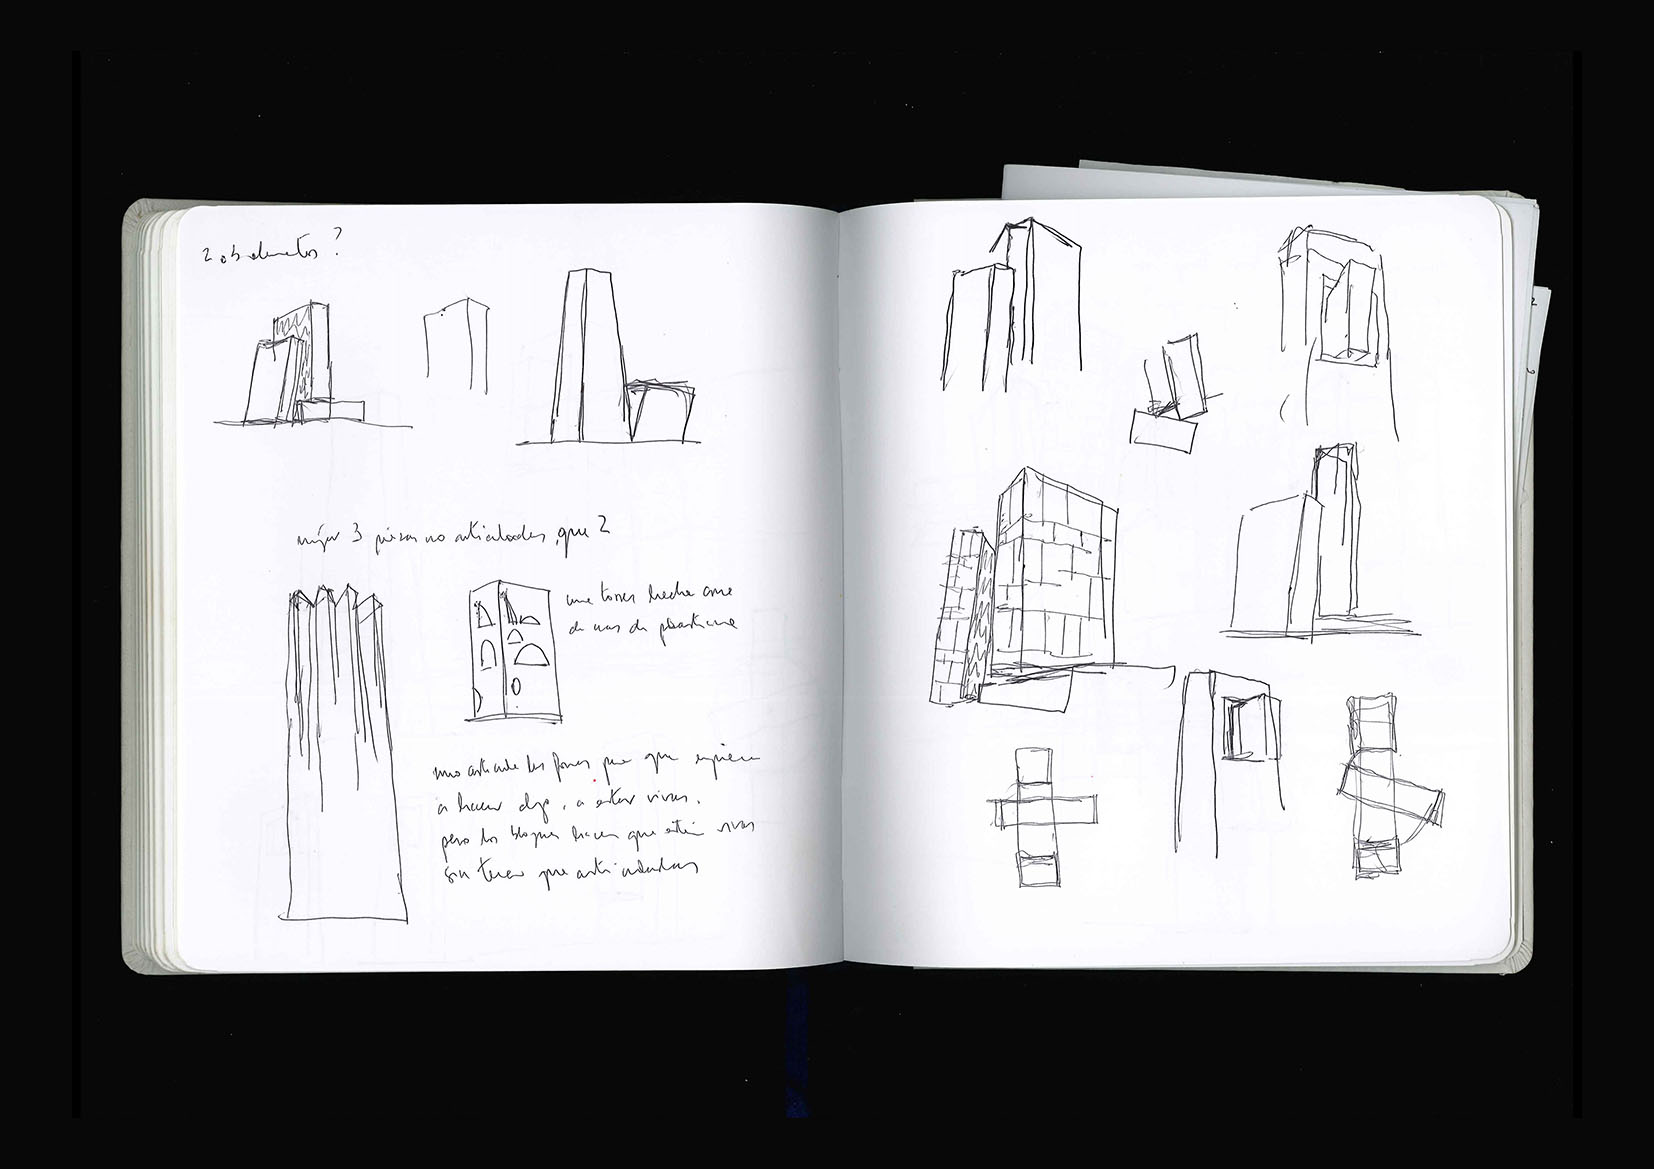 2 o 3 elementos?
mejor 3 piezas no articuladas, que 2
una torre hecha como
de de plastilina
uno articula las formas para que empiecen
a hacer algo, a estar vivas.
pero los bloques hacen que estén vivos
sin tener que articularlos
2